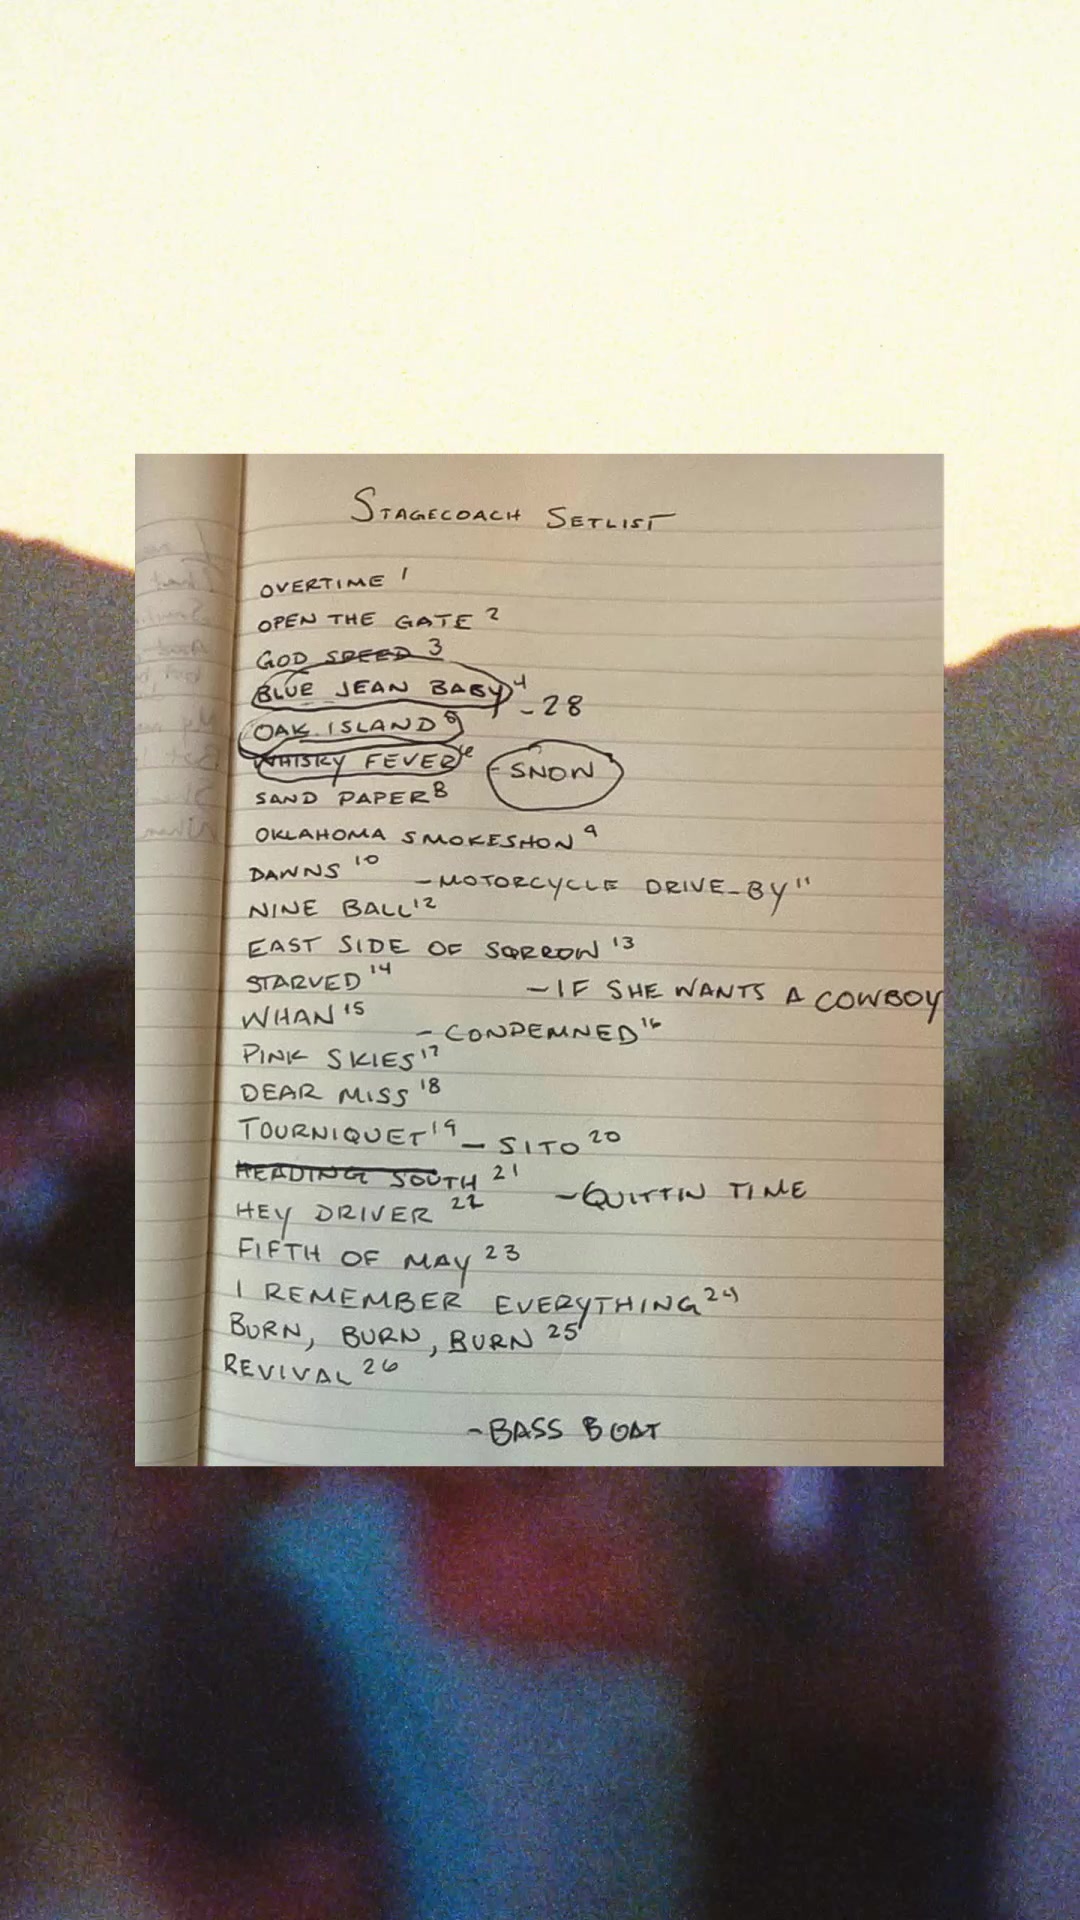 STAGECOACH SETLIST
OVERTIME 1
OPEN THE GATE 2
GOD SPEED 3
BLUE JEAN BABY 4
- 28
OAK ISLAND 5
WHISKY FEVER 6
- SNOW
SAND PAPER 8
OKLAHOMA SMOKESHOW 9
DAWNS 10
- MOTORCYCLE DRIVE-BY 11
NINE BALL 12
EAST SIDE OF SORROW 13
STARVED 14
- IF SHE WANTS A COWBOY
WHAN 15
- CONDEMNED 16
PINK SKIES 17
DEAR MISS 18
TOURNIQUET 19 - SITO 20
HEADING SOUTH 21
- QUITTIN TIME
HEY DRIVER 22
FIFTH OF MAY 23
I REMEMBER EVERYTHING 24
BURN, BURN, BURN 25
REVIVAL 26
- BASS BOAT